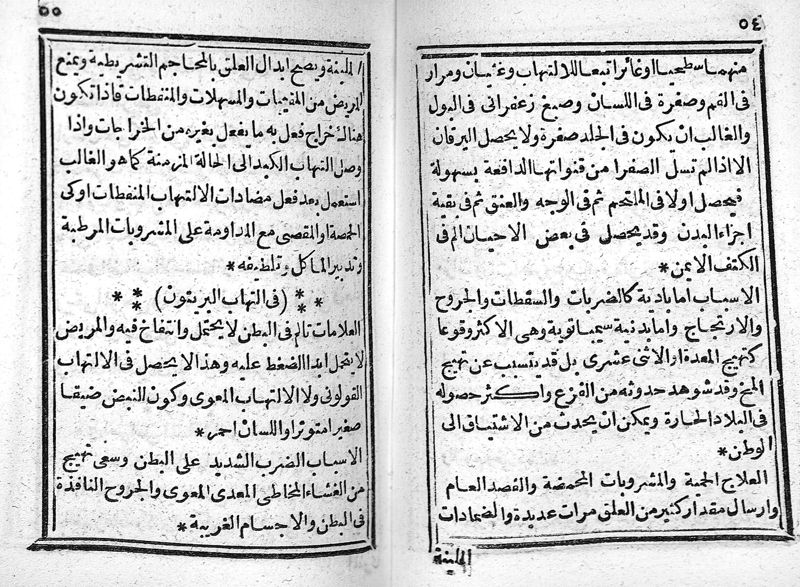 ٥٤
منهما سطحيا اوغائرا تبعا للالتهاب وغثيان ومرار
فى الفم وصفرة فى اللسان وصبغ زعفرانى فى البول
والغالب ان يكون فى الجلد صفرة ولا يحصل اليرقان
الا اذا لم تسل الصفرا من قنواتها الدافعة بسهولة
فيحصل اولا فى الملتحم ثم فى الوجه والعنق ثم فى بقية
اجزاء البدن وقد يحصل فى بعض الاحيان الم فى
الكتف الايمن *
الاسباب اما بادية كالضربات والسقطات والجروح
والارتجاج واما بدنية سيمباتوية وهى الاكثر وقوعا
كتهيج المعدة او الاثنى عشرى بل قد يتسبب عن تهيج
المخ وقد شوهد حدوثه من الفزع واكثر حصوله
فى البلاد الحارة ويمكن ان يحدث من الاشتياق الى
الوطن *
العلاج الحمية والمشروبات المحمضة والفصد العام
وارسال مقدار كثير من العلق مرات عديدة والضمادات
الملينة
٥٥
الملينة ويصح ابدال العلق بالمحاجم التشريطية ويمنع
المريض من المقيئات والمسهلات والمنفطات فاذا تكون
هناك خراج فعل به ما يفعل بغيره من الخراجات واذا
وصل التهاب الكبد الى الحالة المزمنة كما هو الغالب
استعمل بعد فعل مضادات الالتهاب المنفطات او كى
الحمصة او المقصى مع المداومة على المشروبات المرطبة
وتدبير الماكل وتلطيفه *
* * * (فى التهاب البريتون) * * *
العلامات تالم فى البطن لا يحتمل وانتفاخ فيه والمريض
لا يتحمل ابدا الضغط عليه وهذا لا يحصل فى الالتهاب
القولونى ولا الالتهاب المعوى وكون النبض ضيقا
صغيرا متوترا واللسان احمر *
الاسباب الضرب الشديد على البطن وسعى تهيج
من الغشاء المخاطى المعدى المعوى والجروح النافذة
فى البطن والاجسام الغريبة *